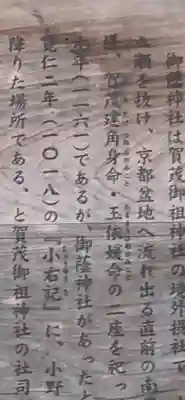 御蔭神社は賀茂御祖神社の境外摂社で
之瀬を抜け、京都盆地へ流れ出る直前の南
賀茂建角身命・玉依媛命の二座を祀っ
元年(一一六一)であるが、御蔭神社があったと
寛仁二年(一〇一八)の『小右記』に、小野
降りた場所である、と賀茂御祖神社の社司